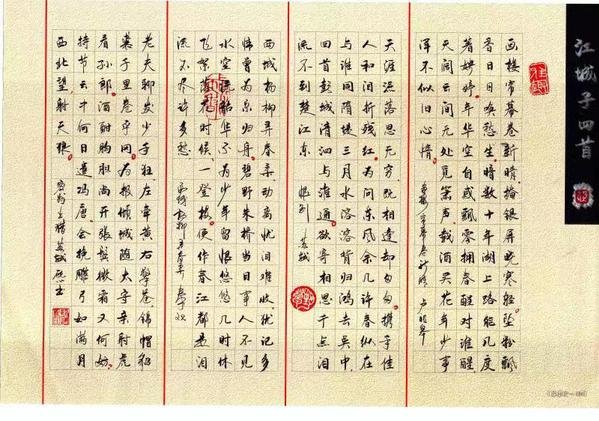 江城子四首
画楼帘幕卷新晴掩银屏晓寒轻坠粉飘
香日日唤愁生暗数十年湖上路能几度
著娉婷年华空自感飘零拥春酲对谁醒
天阔云闲无处觅箫声载酒买花年少事
浑不似旧心情
画楼帘幕卷新晴 卢祖皋
天涯流落思无穷既相逢却匆匆携手佳
人和泪折残红为问东风余几许春纵在
与谁同隋堤三月水溶溶背归鸿去吴中
回首彭城清泗与淮通欲寄相思千点泪
流不到楚江东
恨别 苏轼
西城杨柳弄春柔动离忧泪难收犹记多
情曾为系归舟碧野朱桥当日事人不见
水空流韶华不为少年留恨悠悠几时休
飞絮落花时候一登楼便作春江都是泪
流不尽许多愁
西城杨柳弄春柔 秦观
老夫聊发少年狂左牵黄右擎苍锦帽貂
裘千骑卷平冈为报倾城随太守亲射虎
看孙郎酒酣胸胆尚开张鬓微霜又何妨
持节云中何日遣冯唐会挽雕弓如满月
西北望射天狼
密州出猎 苏轼